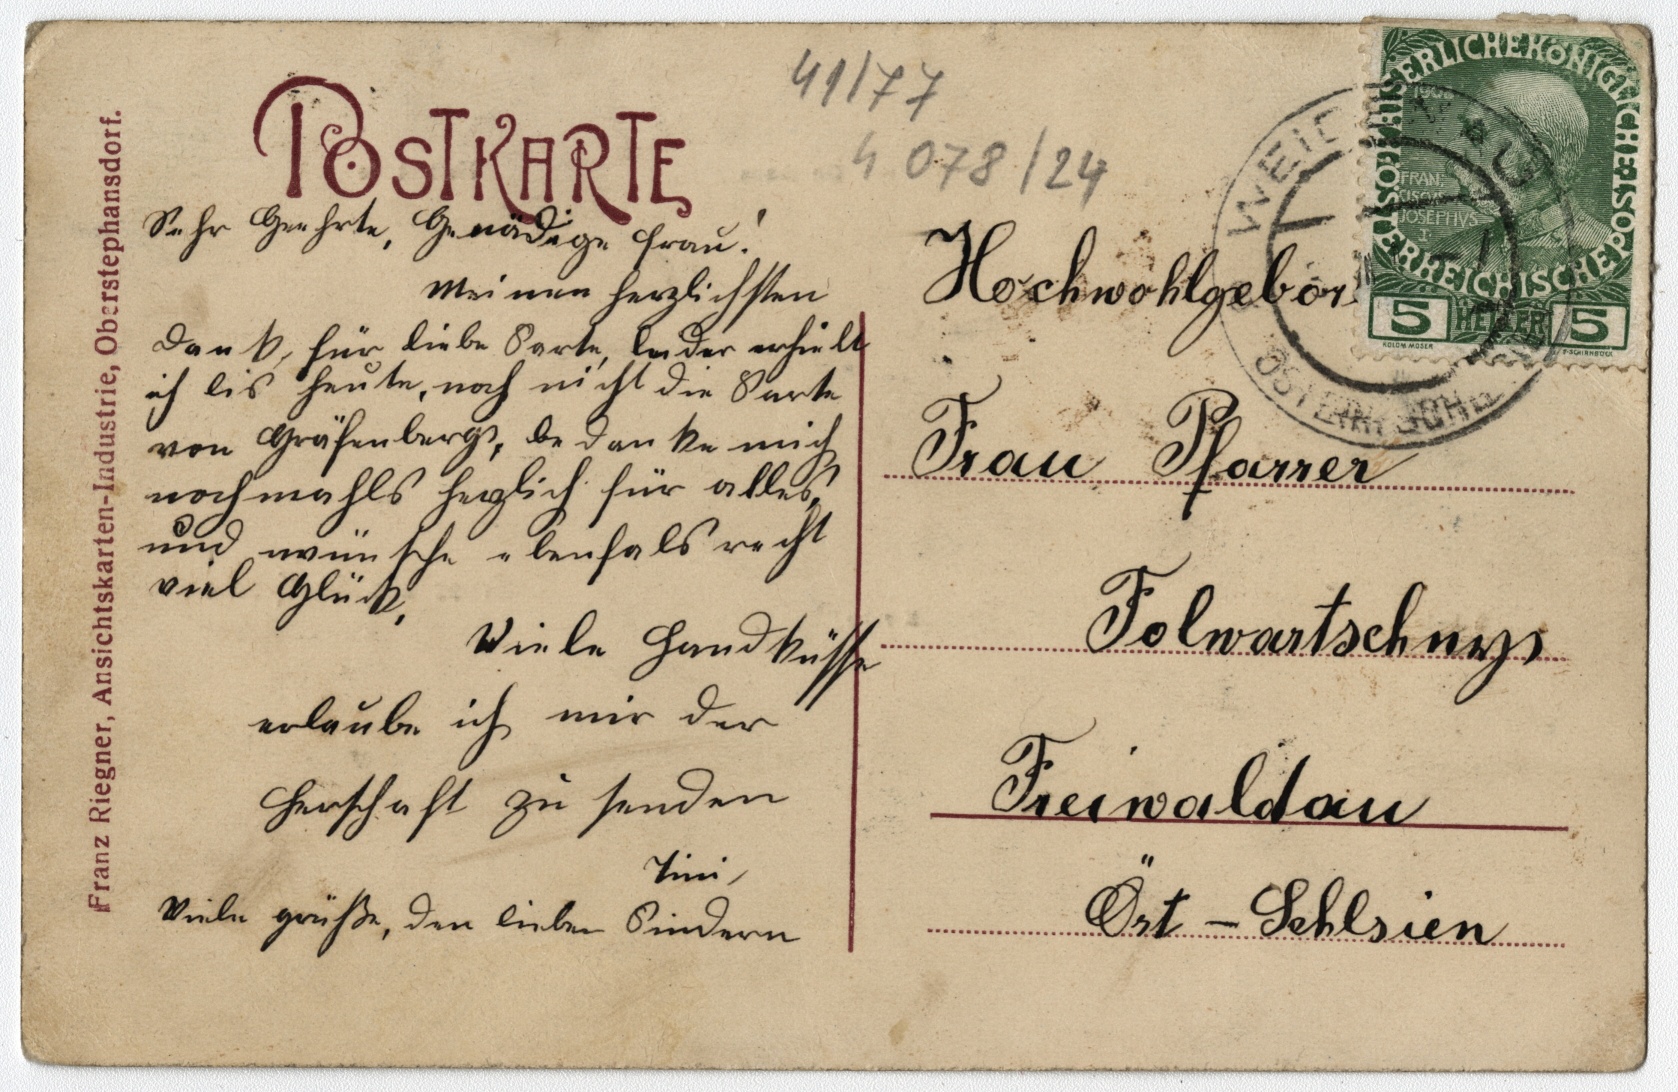 Franz Riegner, Ansichtskarten-Industrie, Oberstephansdorf.
POSTKARTE
41/77
4 078/24
Sehr Geehrte, Genädige Frau!
Meinen herzlichsten
Dank, für liebe Karte, leider erhielt
ich bis heute, noch nicht die Karte
von Gräfenberg, bedanke mich
nochmahls herzlich für alles,
und wünsche ebenfals recht
viel Glück,
Viele Handküsse
erlaube ich mir der
Herschaft zu senden
Tini,
Viele grüße, den lieben Kindern
Hochwohlgebor
Frau Pfarrer
Folwartschny
Freiwaldau
Öst - Schlsien
KAISERLICHE KÖNIGLICHE ÖSTERREICHISCHE POST
1908
FRAN
CISCVS
JOSEPHVS
I.
5 HELLER 5
KOLOM. MOSER
F. SCHIRNBÖCK
WEIC
ÖSTERR. SCHL